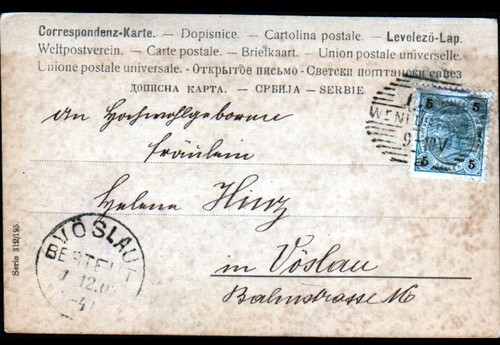 Correspondenz-Karte. — Dopisnice. — Cartolina postale. — Levelező-Lap.
Weltpostverein. — Carte postale. — Briefkaart. — Union postale universelle.
Unione postale universale. - Открытое письмо - Светски поштански савез
ДОПИСНА КАРТА. — СРБИЈА — SERBIE.
An Hochwohlgeboren
Fräulein
Helene Hinz
in Vöslau
Bahnstrasse 16
5 5
5 5
WIEN
VÖSLAU
BESTELLT
12.0
Serie 312/195